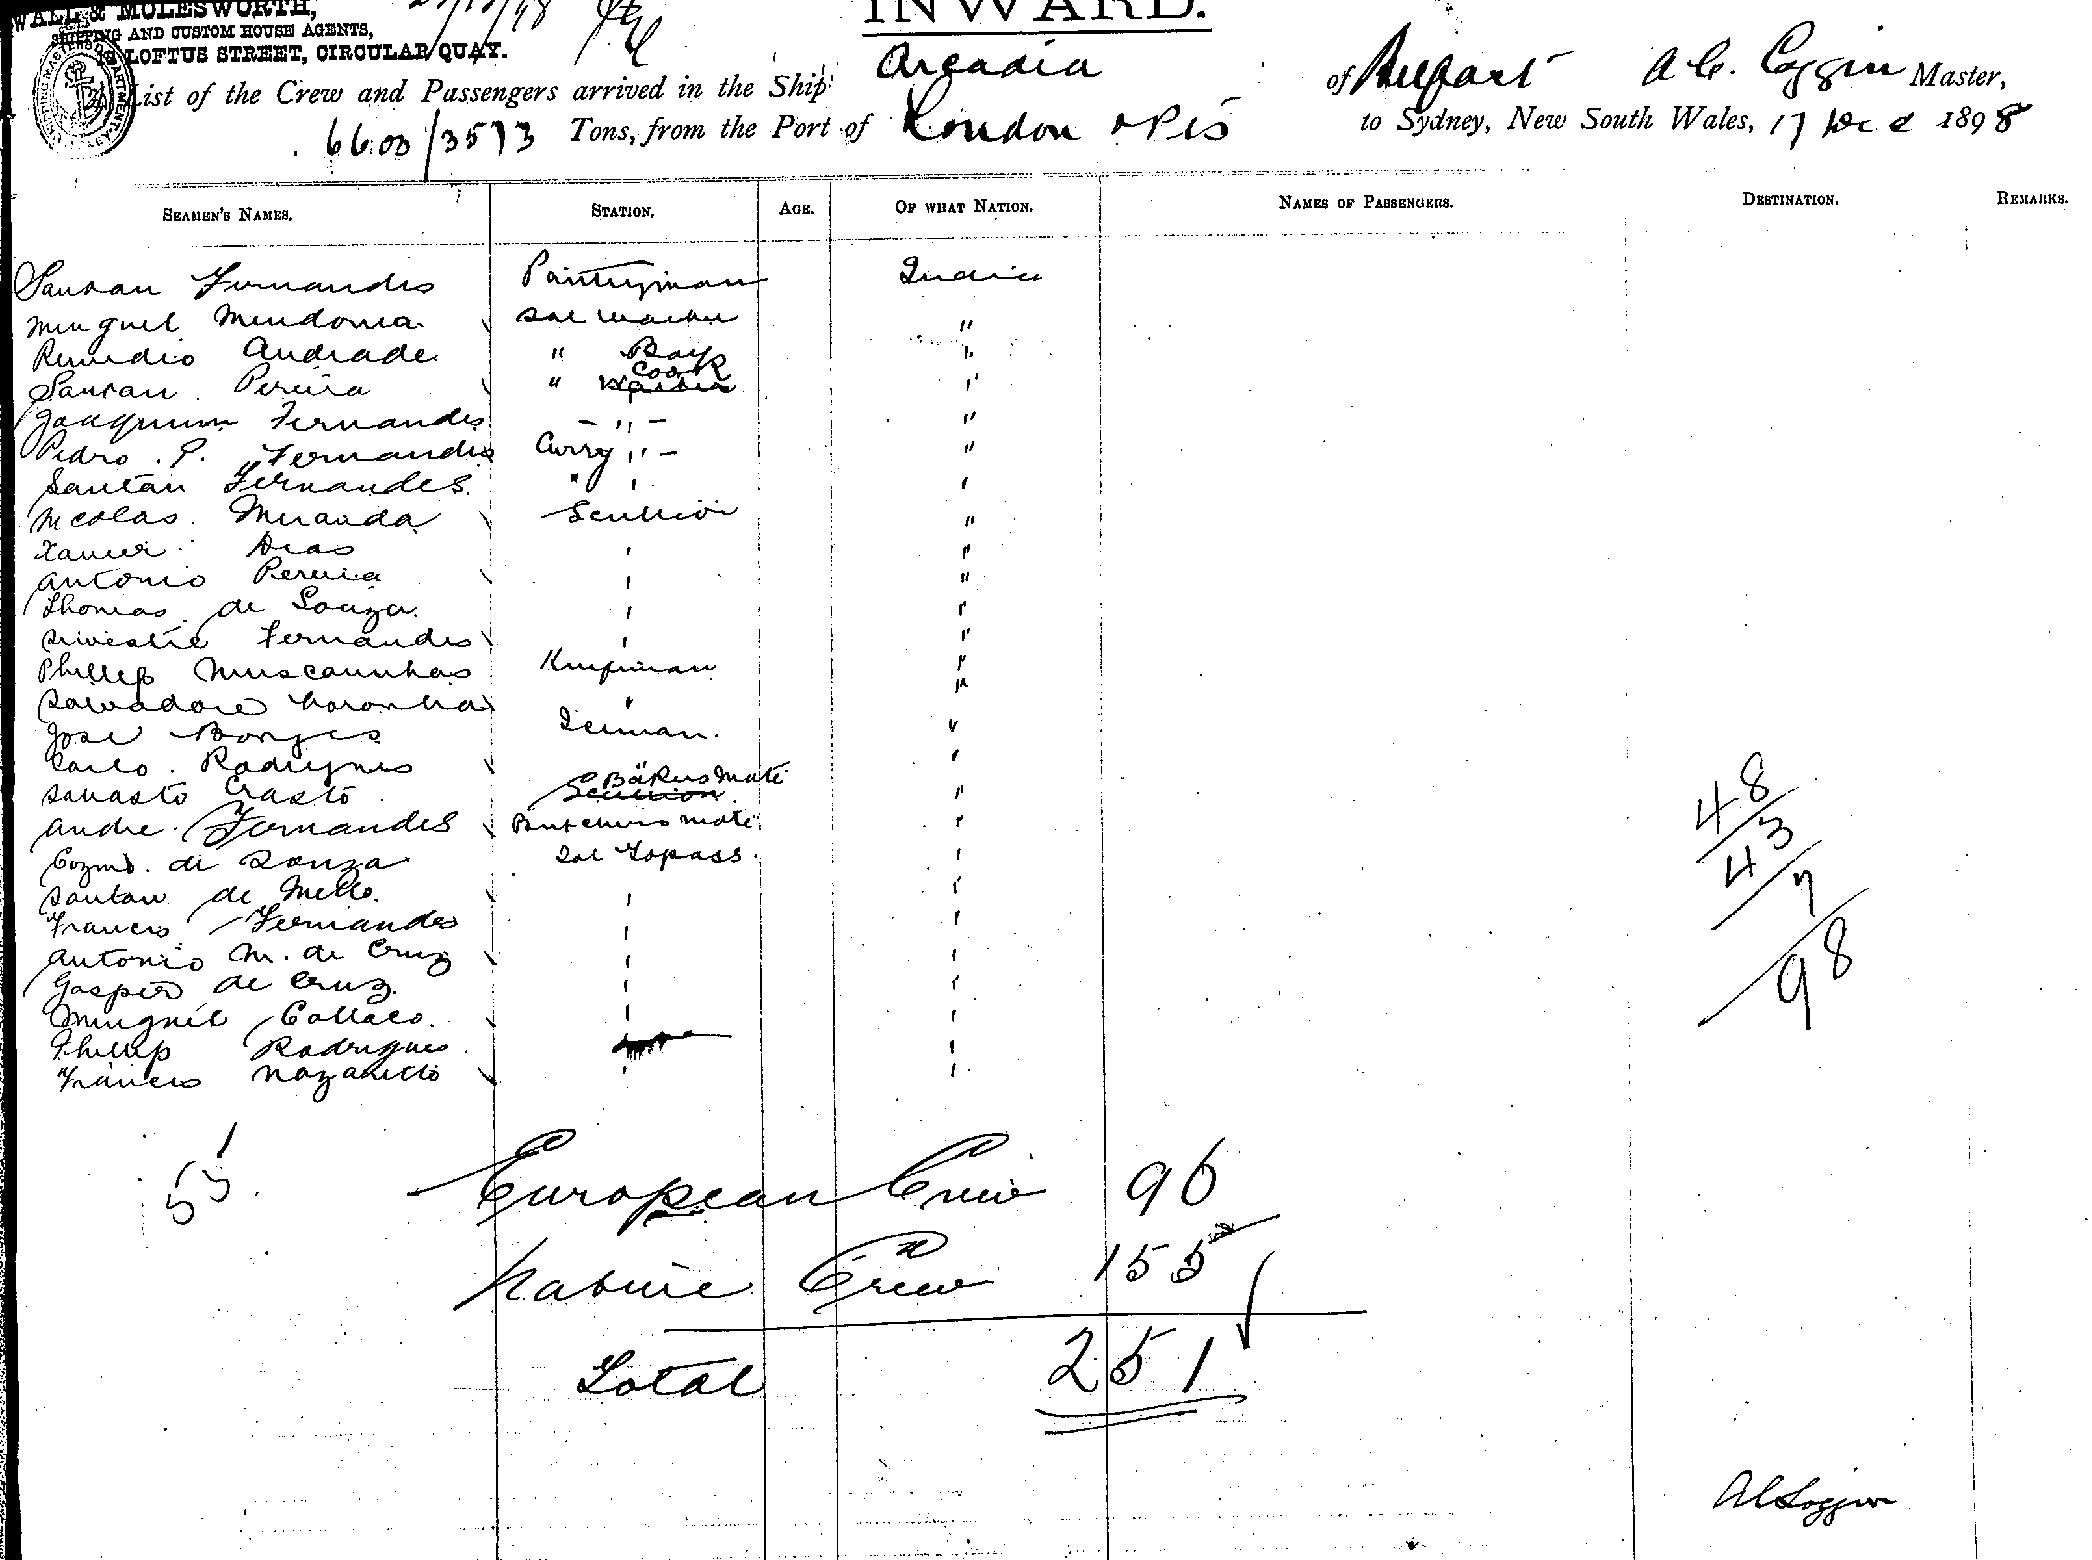 WALL & MOLESWORTH,
SHIPPING AND CUSTOM HOUSE AGENTS,
LOFTUS STREET, CIRCULAR QUAY.
INWARD.
List of the Crew and Passengers arrived in the Ship Arcadia of Belfast A C. Coggin Master,
6603/3573 Tons, from the Port of London & Pts to Sydney, New South Wales, 17 Dec 1898
SEAMEN'S NAMES. STATION. AGE. OF WHAT NATION. NAMES OF PASSENGERS. DESTINATION. REMARKS.
Santan Fernandes Pantryman India
Minguel Mendonca "
Remedio Andrade " Boy "
Santan Pereira " Cook "
Joaquim Fernandes " "
Pedro . P. Fernandes Curry " "
Santan Fernandes " " "
Nicolas Miranda Scullion "
Xavier Dias " "
Antonio Pereira " "
Thomas de Souza " "
Silvestre Fernandes " "
Phillip Muscarinhas "
Salvadore Noronha " "
Jose Borges "
Rodrigues "
Crasto Bakers Mate Scullion "
Andre Fernandes Butchers mate "
de Souza Sal Topass "
Santan de Mello " "
Francis Fernandes " "
Antonio M. de Cruz " "
Gasper de Cruz " "
Minguel Collaco " "
Phillip Rodrigues "
Francis Nazareth " "
48
43
7
98
55
European Crew 96
Native Crew 155
Total 251
A C Coggin